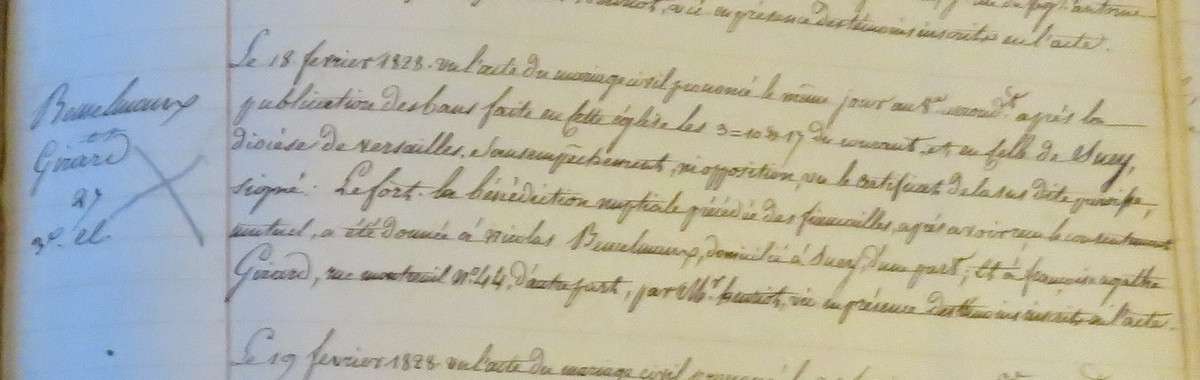 vic. en présence des témoins inscrits en l'acte.
Le 18 fevrier 1828. vu l'acte du mariage civil prononcé le même jour au 8e arrond.t après la
publication des bans faite en cette église les 3=10 & 17 du courant, et en celle de Sucy,
diocèse de Versailles, sans empêchement, ni opposition, vu le certificat de la sus dite paroisse,
signé. Lefort. la bénédiction nuptiale précédée des fiancailles, après avoir reçu le consentement
mutuel, a été donnée à Nicolas Bemelmaux, domicilié à Sucy, d'une part; et à françoise agathe
Girard, rue montreuil n°. 44, d'autre part, par Mr. heuriot, vic en présence des témoins inscrits en l'acte.
Le 19 fevrier 1828. vu l'acte du mariage civil prononcé le
Bemelmaux
et
Girard
27
3e. cl.